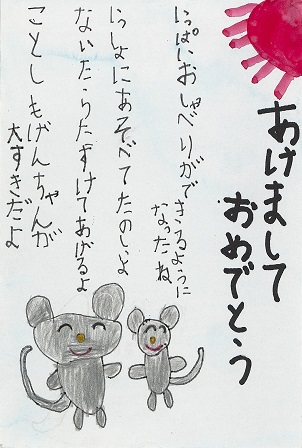 あけまして
おめでとう
いっぱいおしゃべりができるように
なったね
いっしょにあそべてたのしいよ
ないたらたすけてあげるよ
ことしもげんちゃんが
大すきだよ